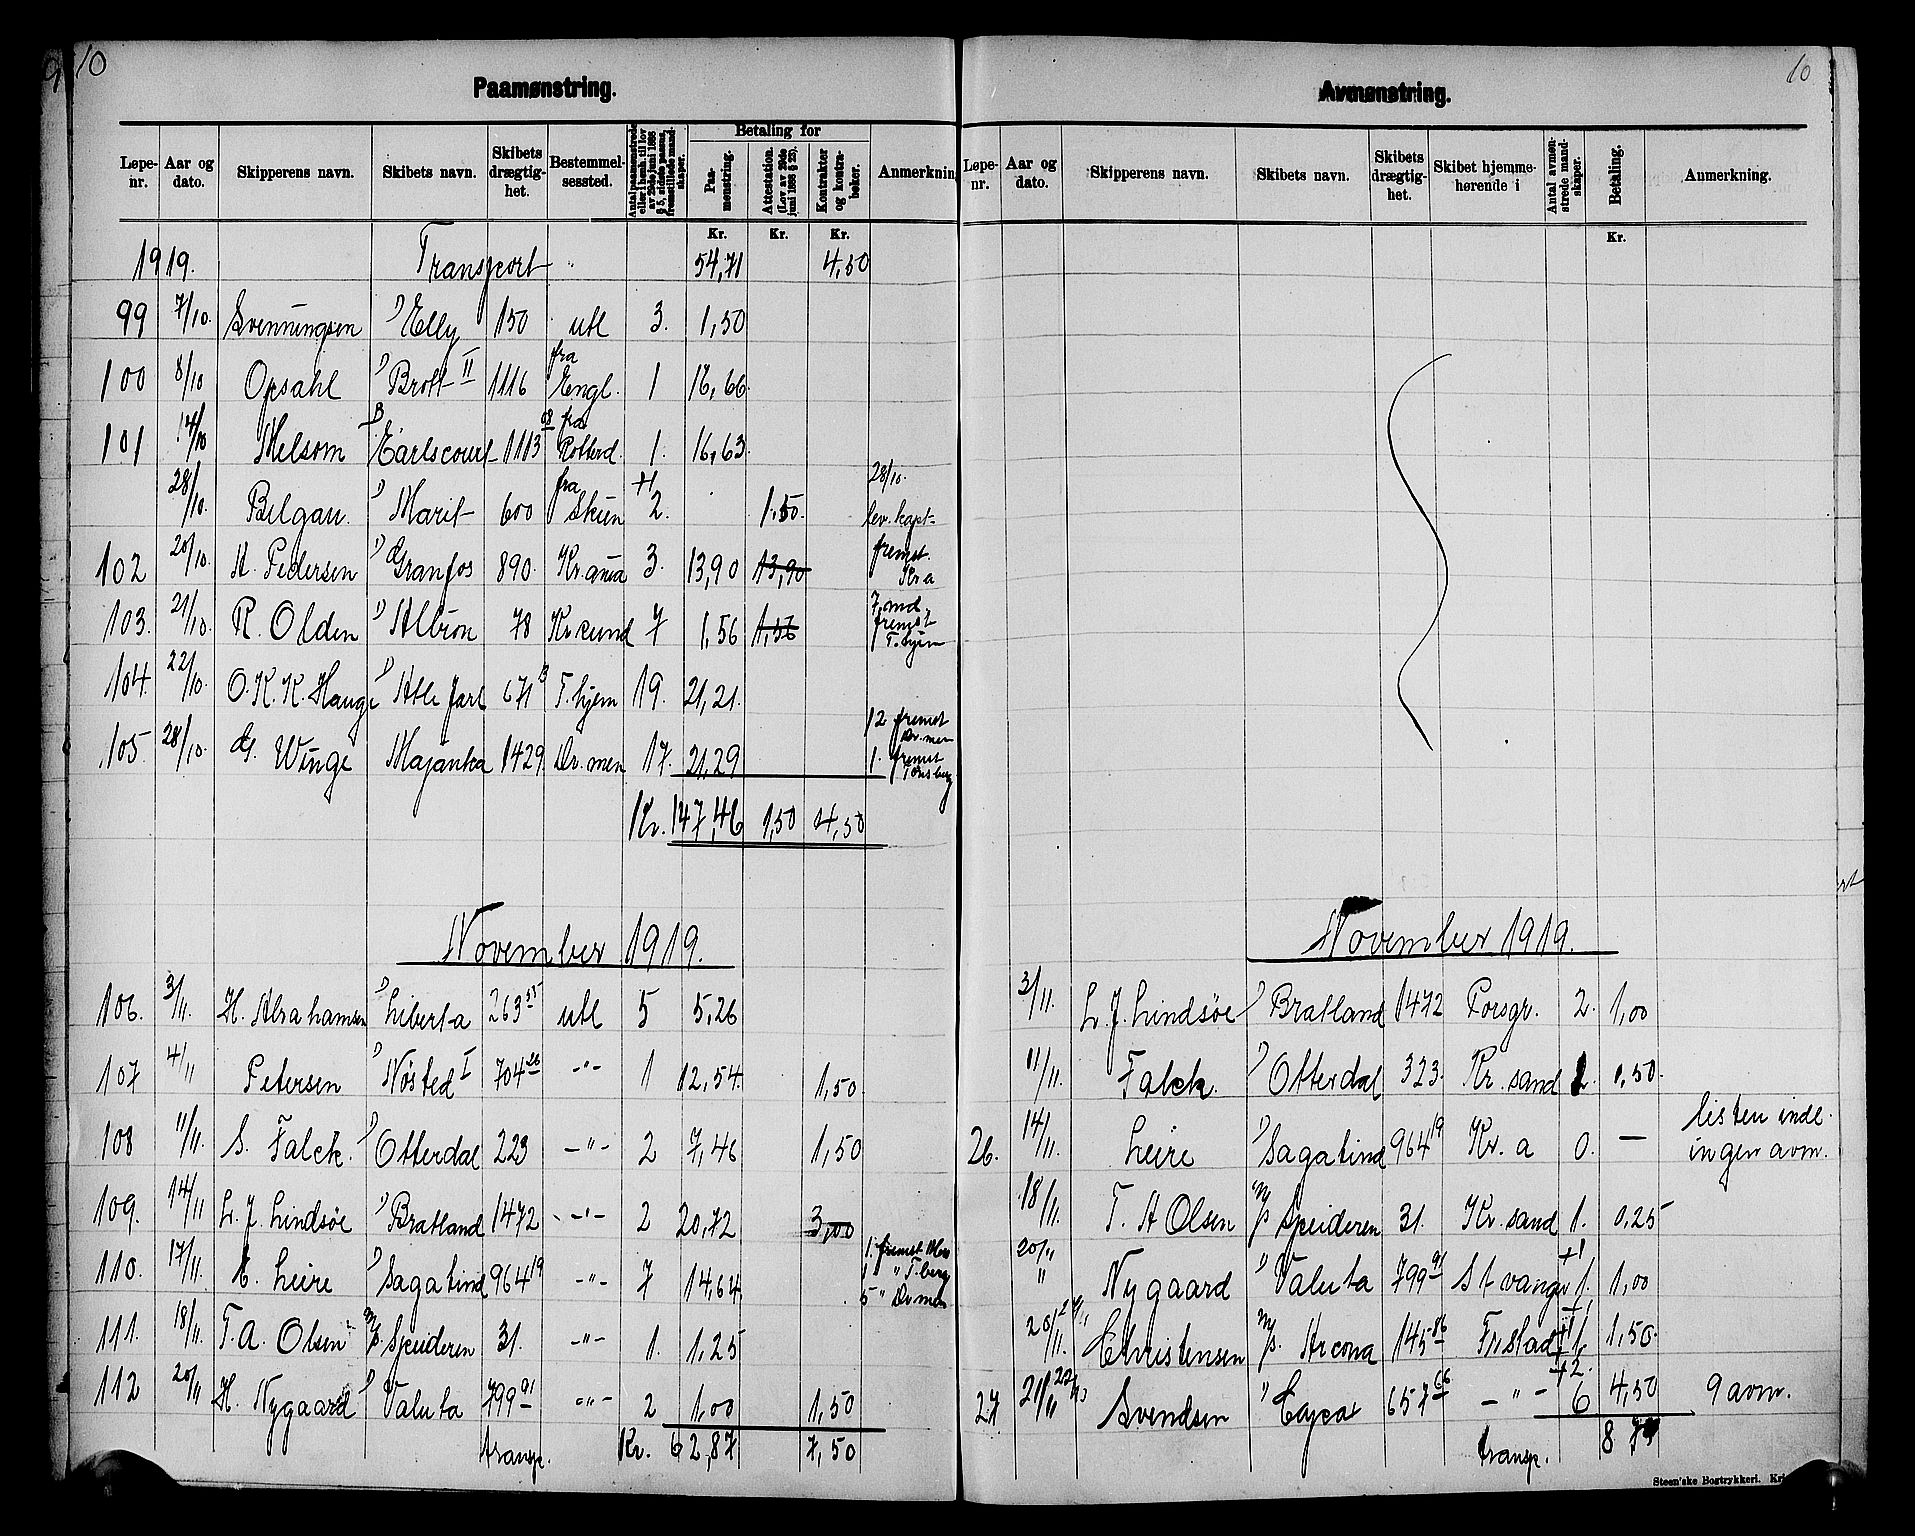 10
Paamønstring.
Løpe-nr. Aar og dato. Skipperens navn. Skibets navn. Skibets drægtig-het. Bestemmel-sessted. Antal paamønstrede eller i henh. til lov av 29de juni 1888 § 5, sidste passus, fremstillede mand-skaper. Betaling for Paa-mønstring. Attestation. (Lov av 29de juni 1888 § 23). Kontrakter og kontra-bøker. Anmerkning
Kr. Kr. Kr.
1919. Transport " 54,71 4,50
99 7/10. Svenningsen D Elly 150 utl 3. 1,50
100 8/10 Opsahl D Brott II 1116 fra Engl. 1 16,66
101 14/10 Melsom B Earlscourt 1113 98 fra Rotterd. 1. 16,63
28/10. Bilgau. D Marit 600 fra Skien +1 2. 1,50. 28/10. lev. kapt.
102 20/10. H. Pedersen D Granfos 890. Kr.ania 3. 13,90 13,90 fremst. Kr a
103. 21/10. R. Olden D Albion 78 Kr sund 7 1,56 1,56 7 md. fremst T.hjem
104. 22/10. O. K. K. Hauge D Atle Jarl 671 T.hjem 19. 21,21.
105. 28/10. G. Winge Majanka 1429 Dr.men 17. 21,29 12 fremst Dr.men 1. fremst Tønsberg
Kr. 147,46 1,50 4,50
November 1919.
106. 3/11. H. Abrahamsen D Liberta 263 55 utl 5 5,26
107 4/11 Petersen D Nøsted I 704 26 -"- 1 12,54. 1,50.
108 11/11. S. Falck. D Otterdal 223 -"- 2 7,46 1,50
109. 14/11 L. J. Lindsøe D Bratland 1472 -"- 2 20,72 3,00
110. 17/11. E. Leire D Sagatind 964 19 -"- 7 14,64 1. fremst 1 " T.berg 5 " Dr.men
111. 18/11. T. A. Olsen M/S Speideren 31. -"- 1. 1,25
112 20/11 H. Nygaard D Valuta 799 91 -"- 2 1,00 1,50
transp. Kr. 62,87 7,50
10
Avmønstring.
Løpe-nr. Aar og dato. Skipperens navn. Skibets navn. Skibets drægtig-het. Skibet hjemme-hørende i Antal avmøn-strede mand-skaper. Betaling. Anmerkning.
Kr.
November 1919.
3/11. L. J. Lindsøe D Bratland 1472 Porsgr. 2. 1,00
11/11. Falck. D Otterdal 323. Kr. sand 1,50.
26. 14/11. Leire D Sagatind 964 19 Kr. a 0. — listen indl. ingen avm.
18/11. T. A Olsen M/S Speideren 31. Kr. sand 1. 0,25
20/11 " Nygaard D Valuta 799 91 Stvanger +1 1. 1,00
20/11. Christensen M/S. Arcona 145 86 Fr.stad 1,50.
27 21/11 Svendsen D 657 66 - " - +2 6 4,50 9 avm.
transp. 8 75
Steen'ske Bogtrykkeri. Kri